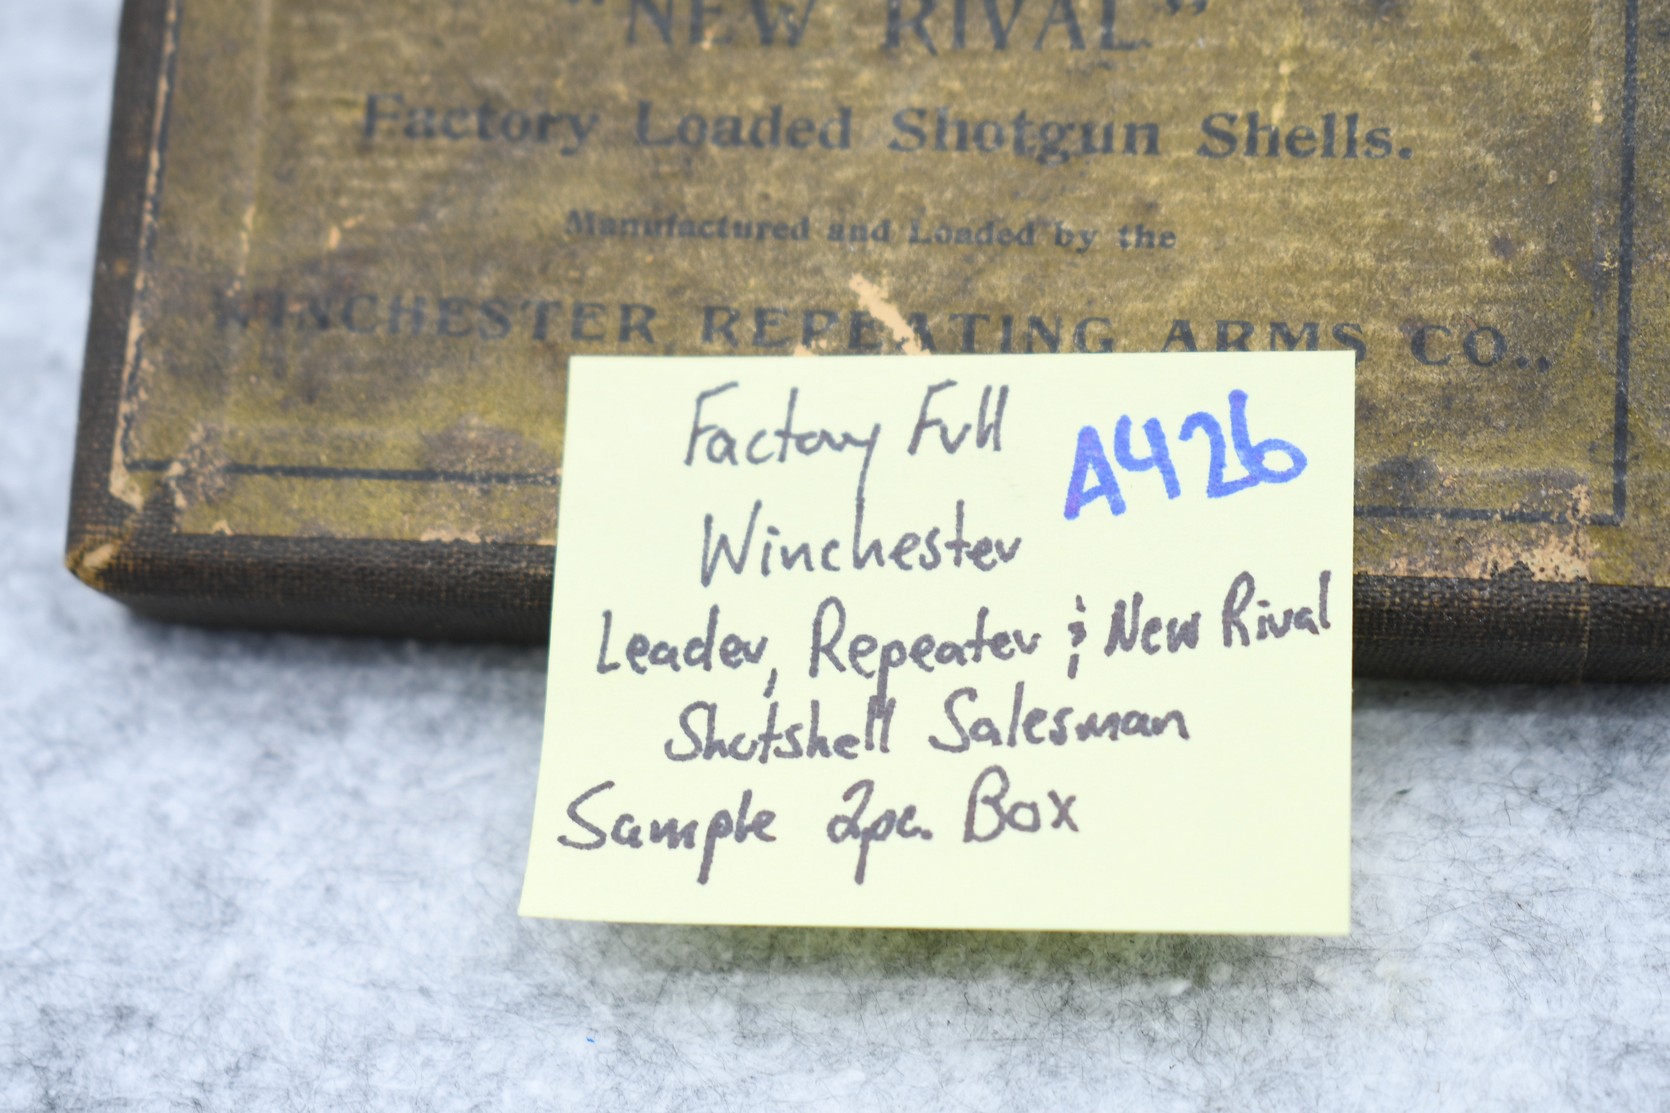 "NEW RIVAL"
Factory Loaded Shotgun Shells.
Manufactured and Loaded by the
WINCHESTER REPEATING ARMS CO.,
Factory Full
A426
Winchester
Leader, Repeater & New Rival
Shotshell Salesman
Sample 2pc. Box